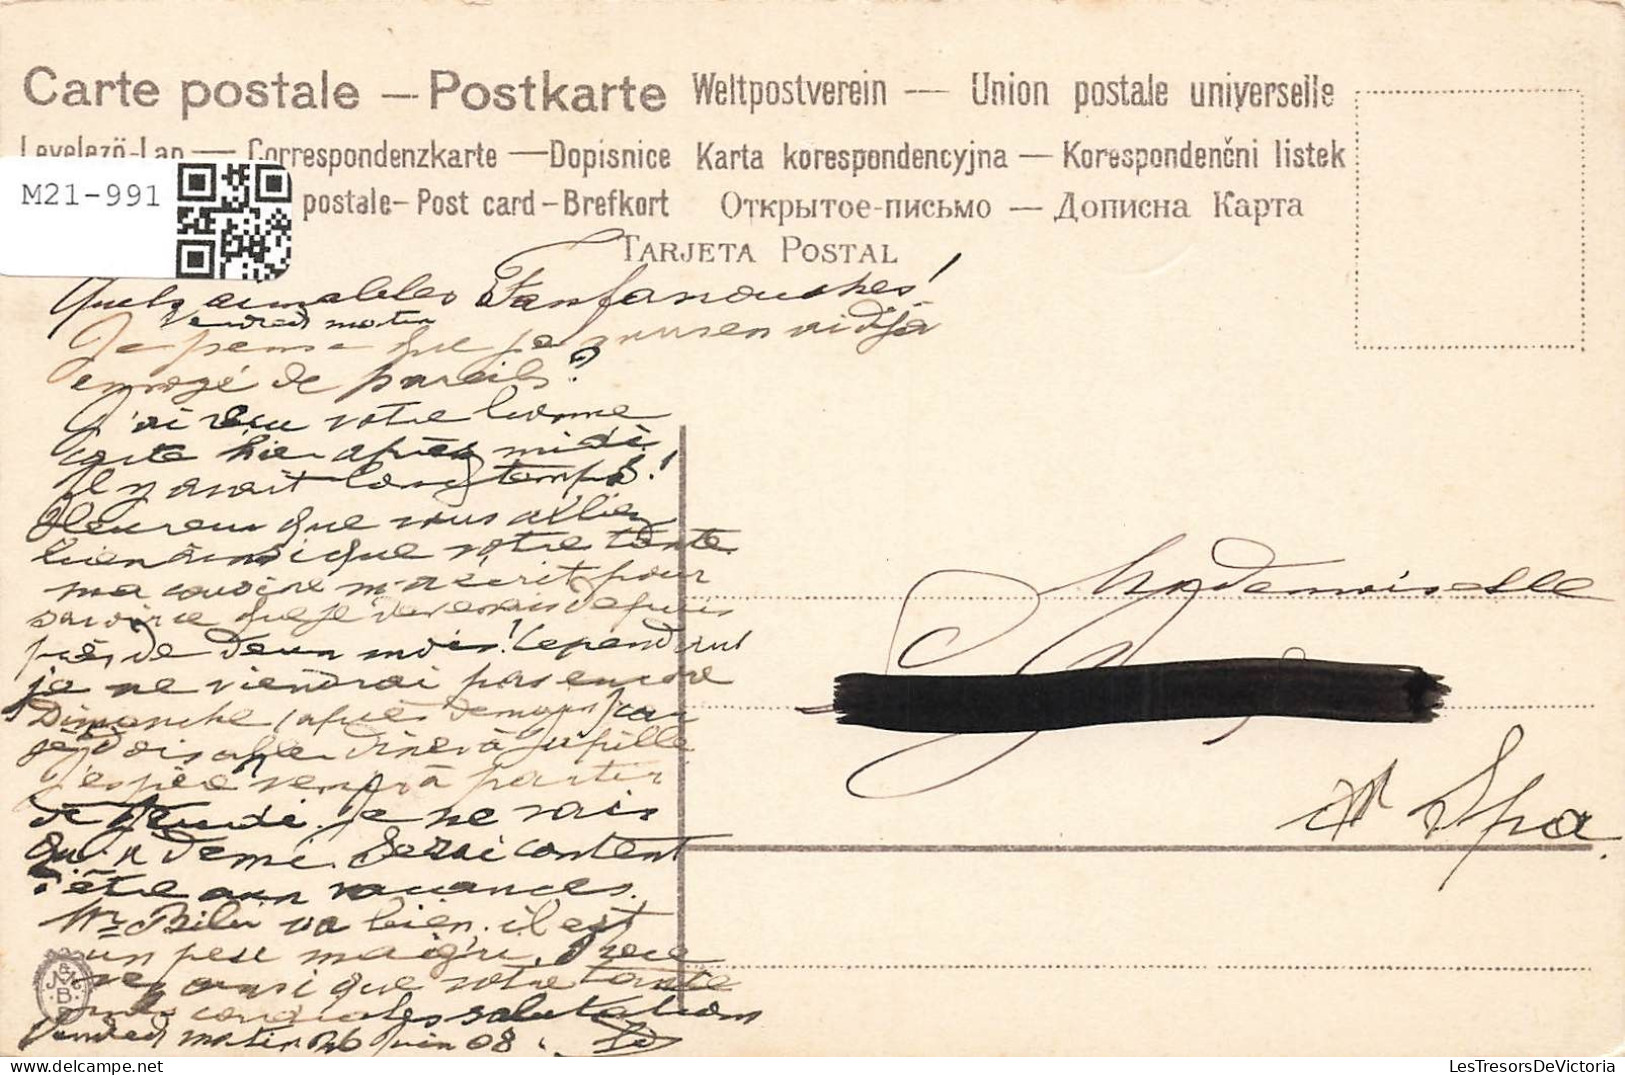 Carte postale — Postkarte Weltpostverein — Union postale universelle
Levelező-Lap — Correspondenzkarte — Dopisnice Karta korespondencyjna — Korespondenčni listek
M21-991
postale - Post card - Brefkort Открытое-письмо — Дописна Карта
TARJETA POSTAL
Quels aimables Fanfanouches!
Vendredi matin
Je pense que je
envoyé de pareils?
J'ai reçu votre bonne
carte hier après midi
Il y avait longtemps!
Heureux que vous alliez
bien ainsi que votre tante
ma m'a écrit pour
savoir ce que je devenais depuis
près de deux mois! Cependant
je ne viendrai pas encore
Dimanche (après demain) car
je dois aller diner à Jupille
J'espère venir à partir
de Jeudi. je ne vais
qu'à demi. Serai content
d'être aux vacances.
Mr va bien. il est
un peu maigri.
ainsi que votre tante
mes cordiales salutations
Vendredi matin 26 juin 08.
Mademoiselle
à Spa.
J M & Co
B
LesTresorsDeVictoria